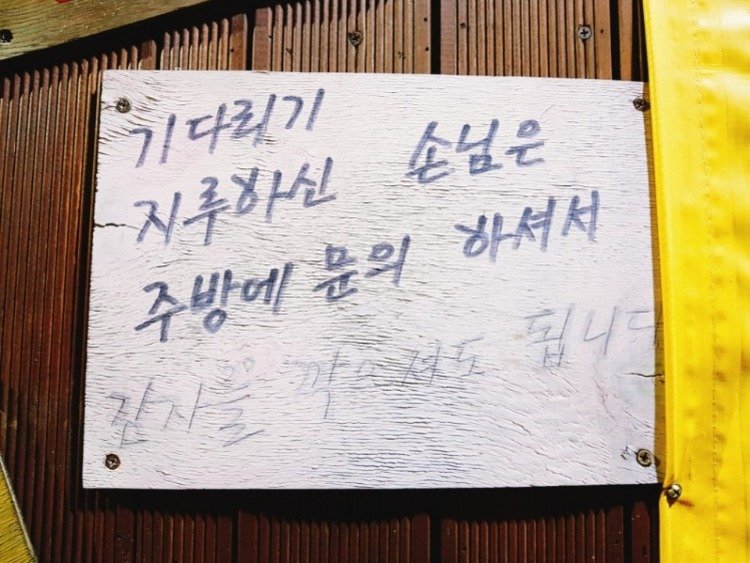 기다리기
지루하신 손님은
주방에 문의 하셔서
감자를 깍으셔도 됩니다